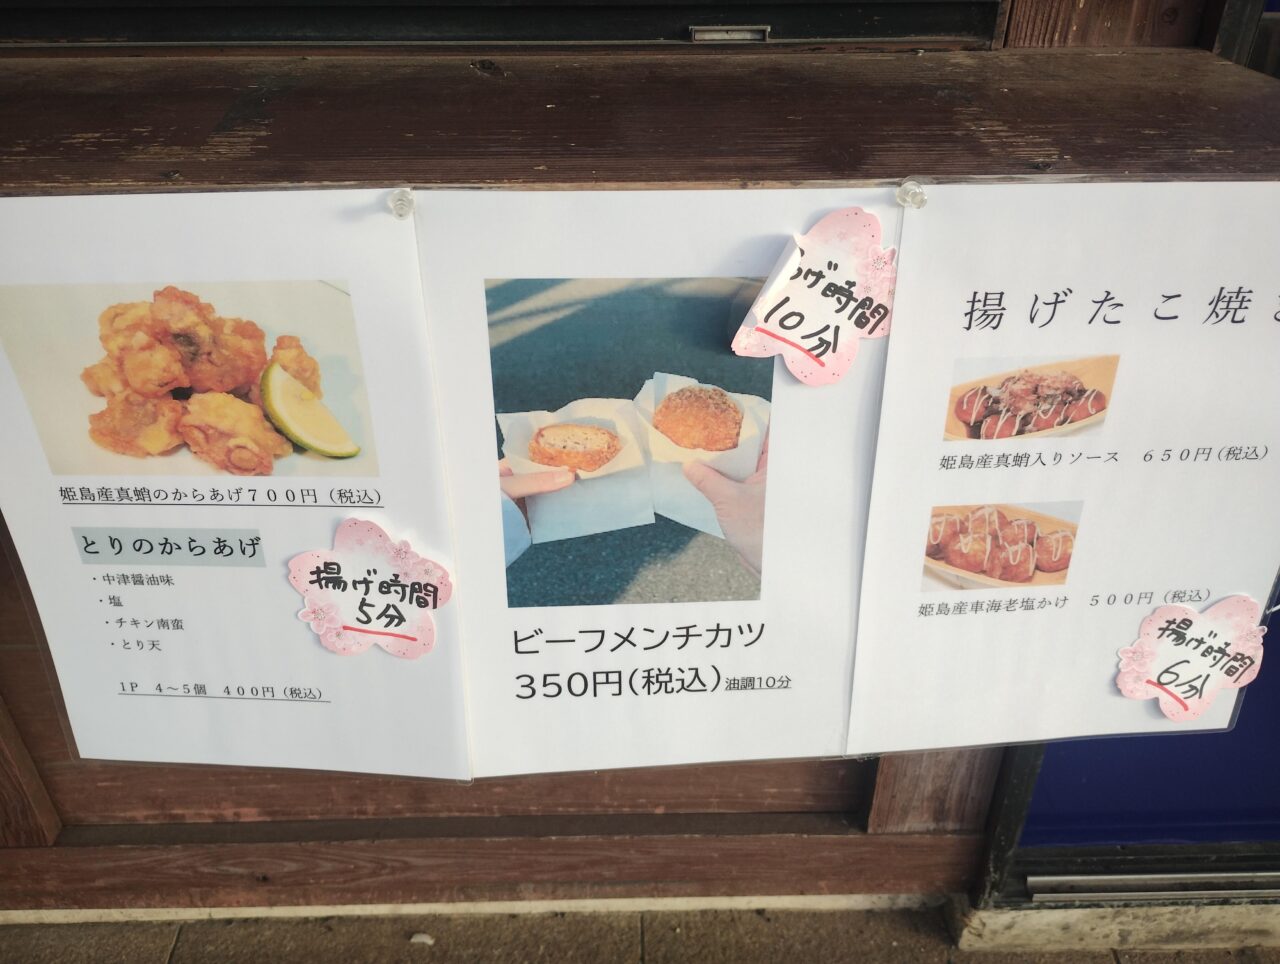 姫島産真蛸のからあげ７００円（税込）
とりのからあげ
・中津醤油味
・塩
・チキン南蛮
・とり天
１Ｐ　４～５個　４００円（税込）
揚げ時間
５分
げ時間
10分
ビーフメンチカツ
350円(税込)油調10分
揚げたこ焼き
姫島産真蛸入りソース　６５０円（税込）
姫島産車海老塩かけ　５００円（税込）
揚げ時間
6分